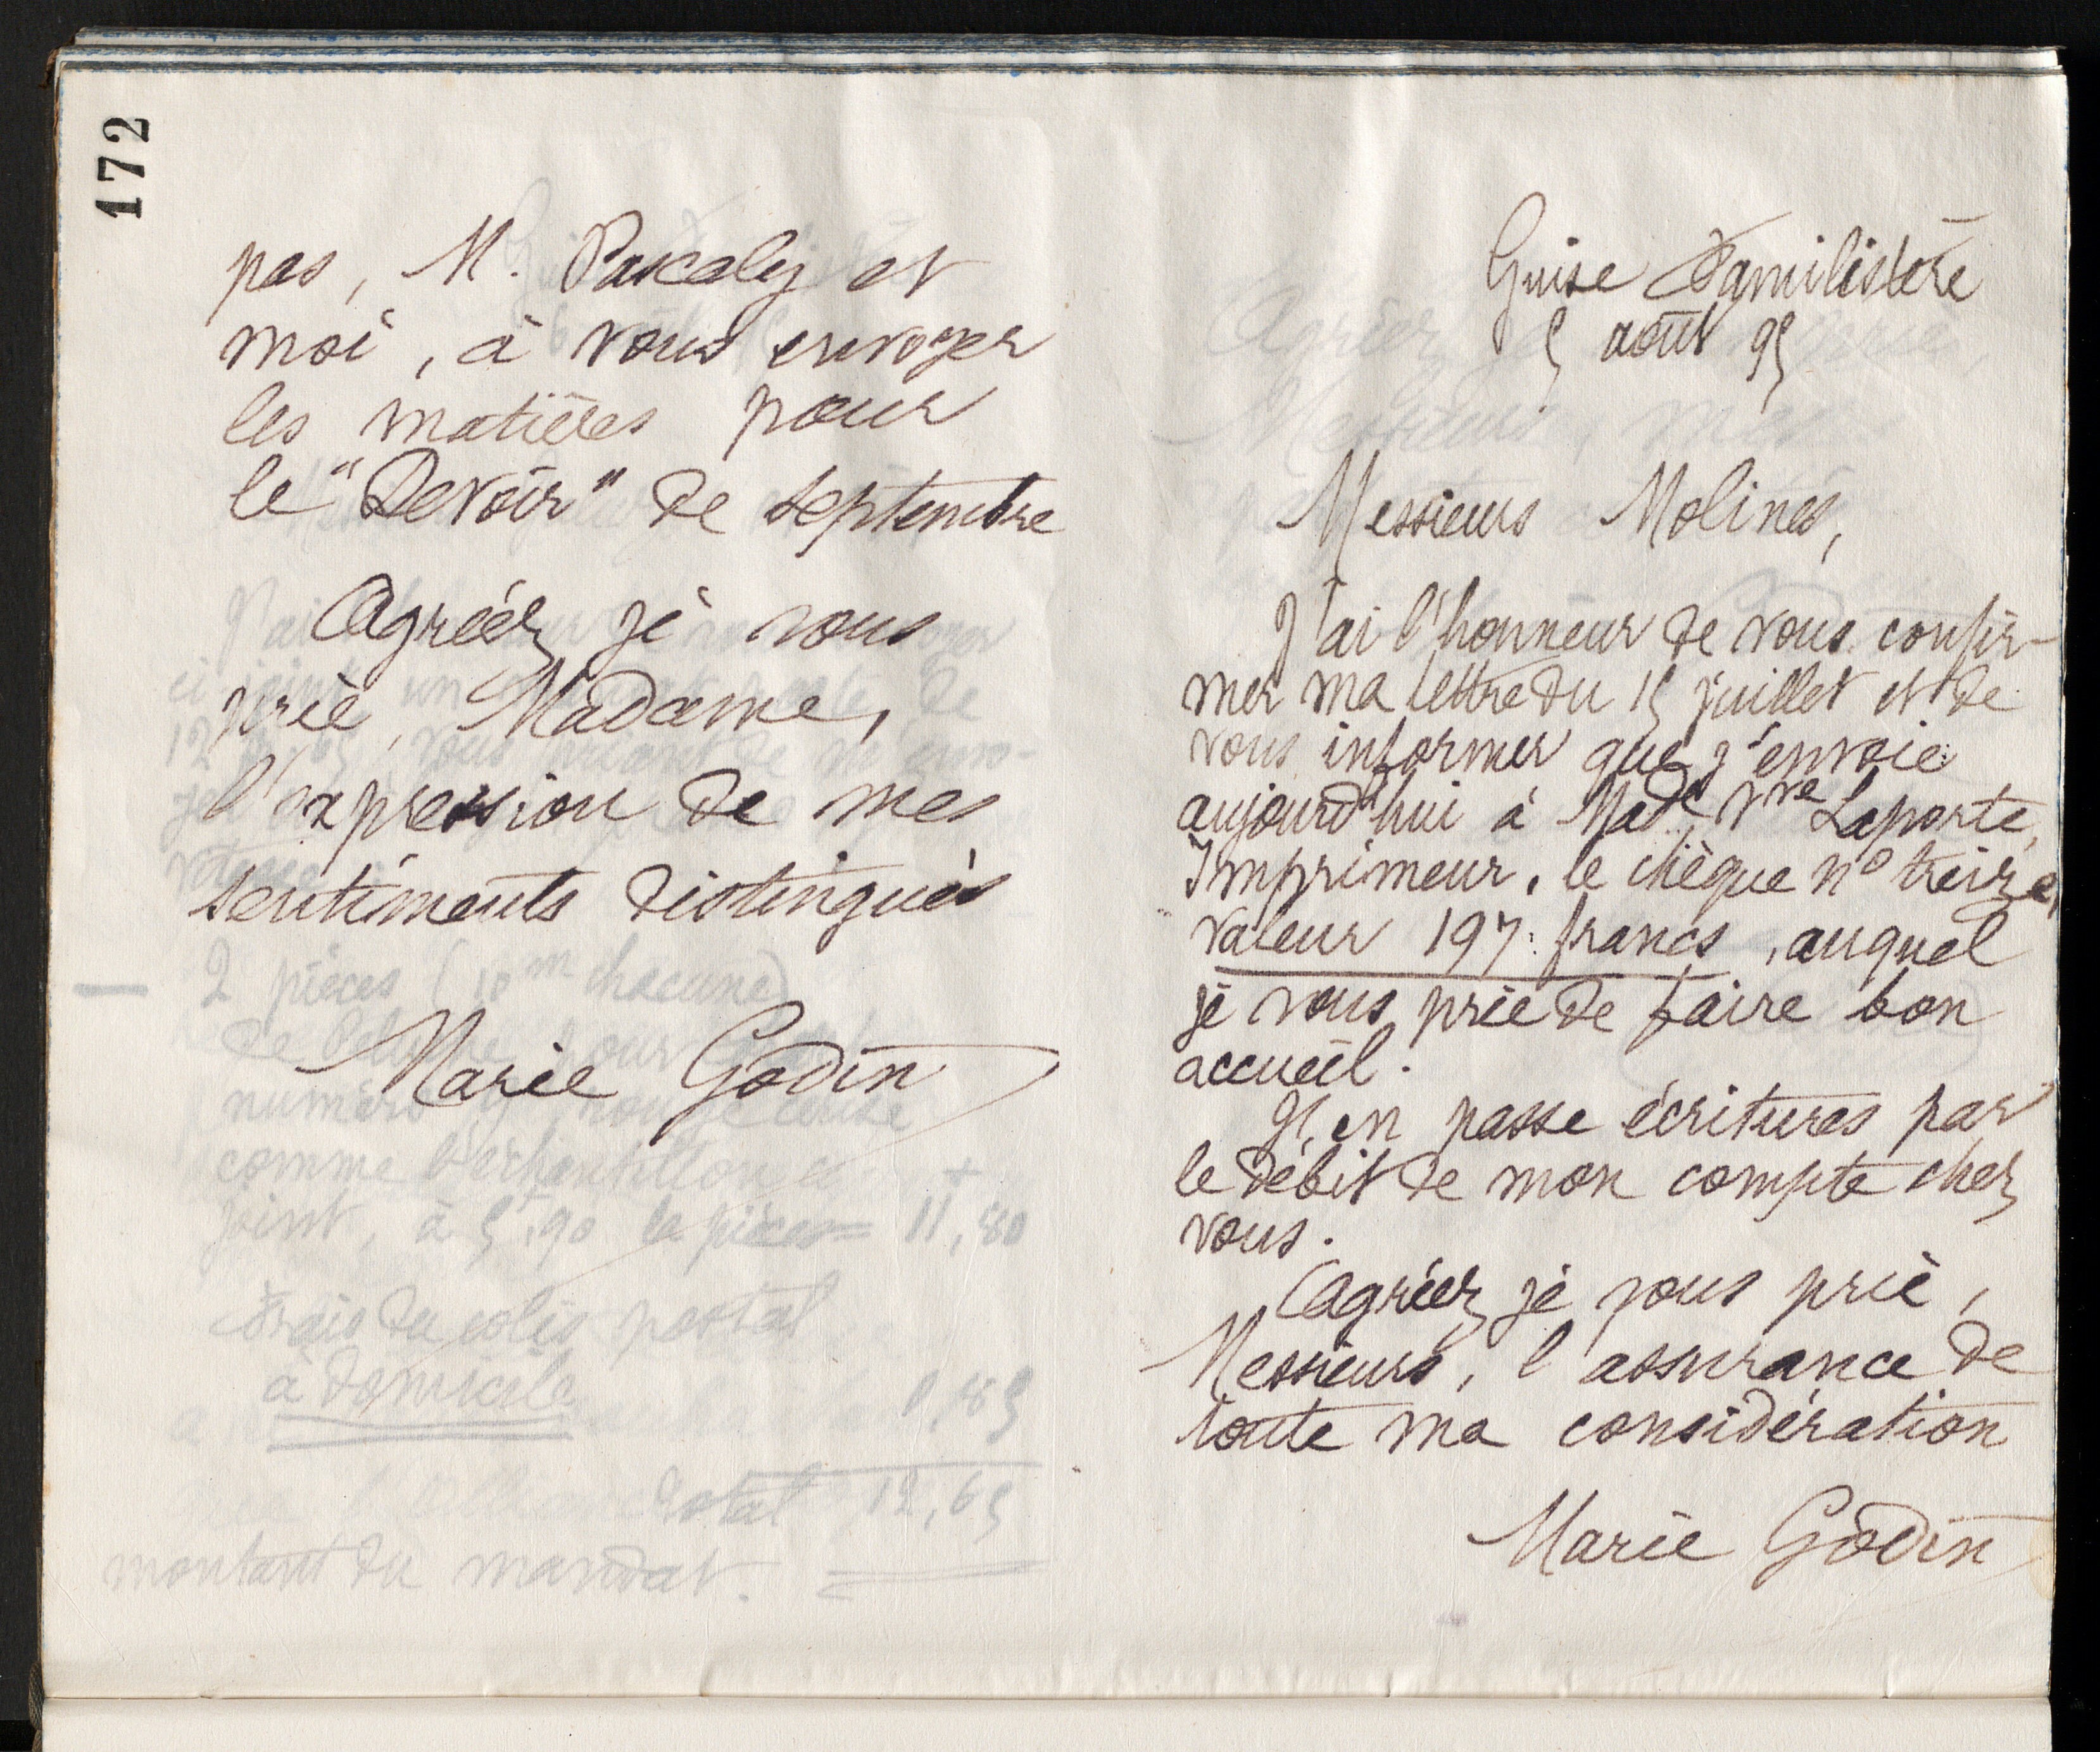 172
pas, M. Pascaly et
moi, à vous envoyer
les matières pour
le "Devoir" de septembre
Agréez je vous
prie, Madame,
l'expression de mes
sentiments distingués
Marie Godin
Guise Familistère
5 août 95
Messieurs Molines,
J'ai l'honneur de vous confir-
mer ma lettre du 15 juillet et de
vous informer que j'envoie
aujourd'hui à Made Vve Laporte,
Imprimeur, le chèque no treize,
valeur 197 francs, auquel
je vous prie de faire bon
accueil.
J'en passe écritures par
le débit de mon compte chez
vous.
Agréez je vous prie,
Messieurs, l'assurance de
toute ma considération
Marie Godin
2 pièces (10m chacune)
comme l'échantillon ci
joint, à 5f,90 la pièce = 11,80
Frais du colis postal
à domicile 0,85
total 12,65
montant du mandat.